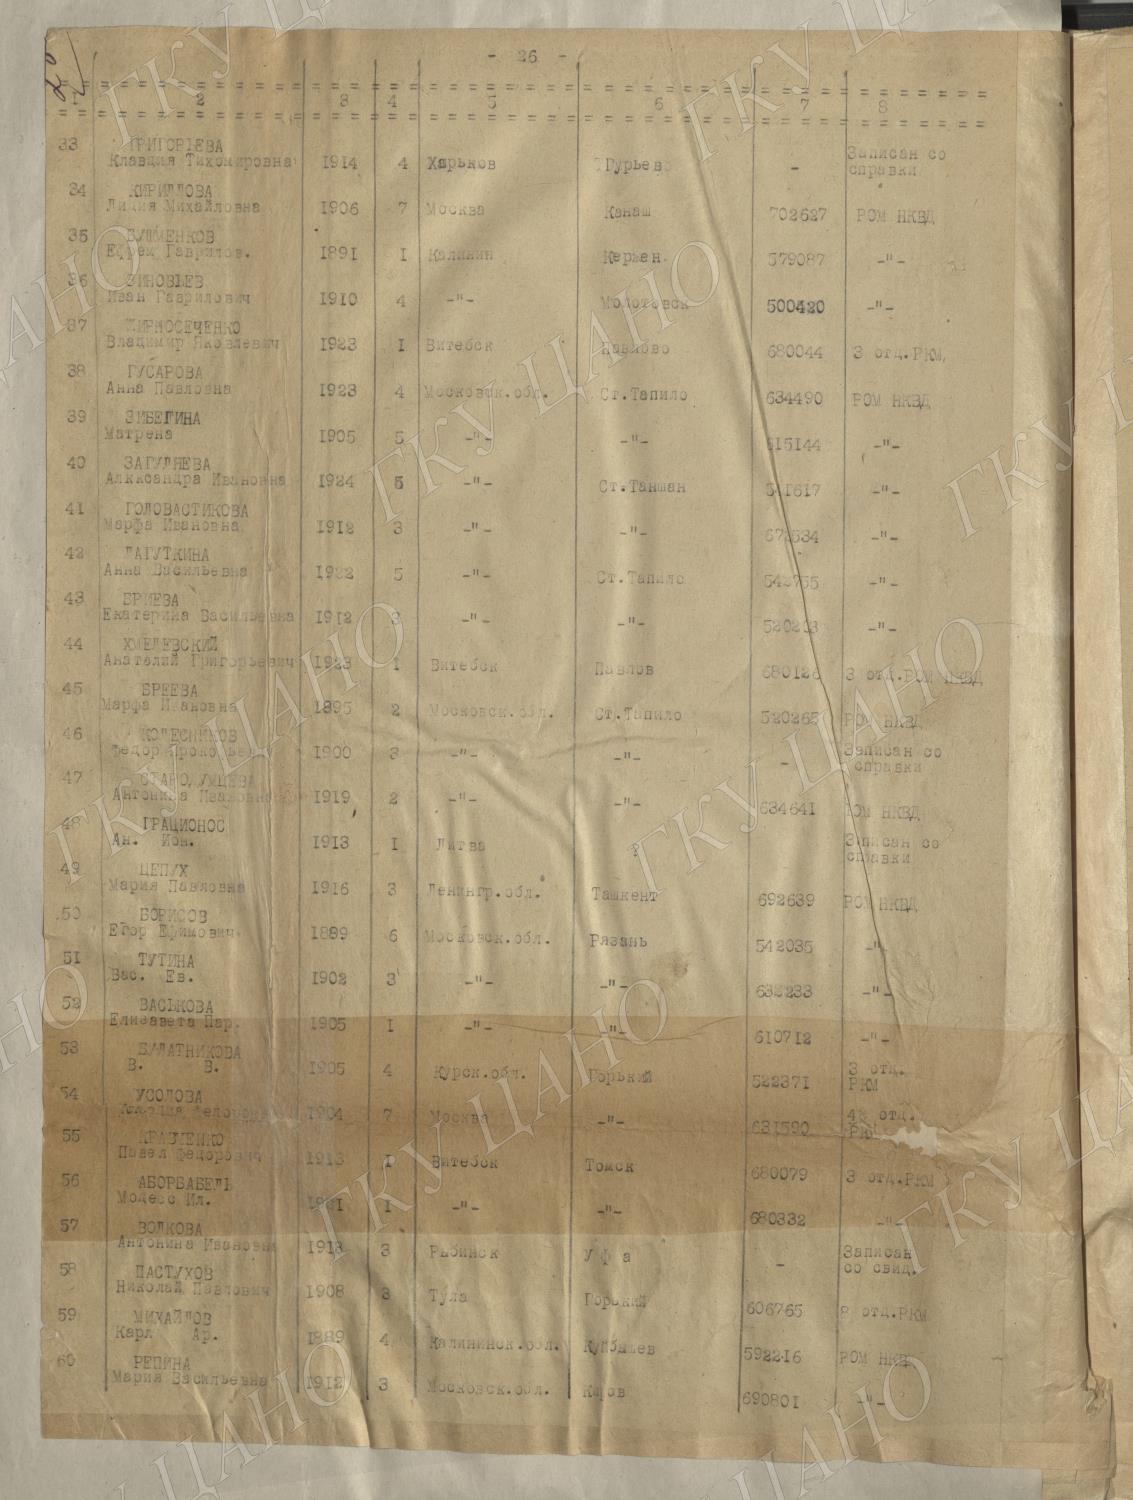 - 26 -
1 2 3 4 5 6 7 8
33 ГРИГОРЬЕВА
Клавдия Тихомировна 1914 4 Харьков Гурьев - Записан со справки
34 КИРИЛЛОВА
Лидия Михайловна 1906 7 Москва Канаш 702627 РОМ НКВД
35
Ефрем Гаврилов. 1891 1 Калинин Кержен. 579087 -"-
36 ЗИНОВЬЕВ
Иван Гаврилович 1910 4 -"- Молотовск 500420 -"-
37 ЖИРНОСЕЧЕНКО
Владимир Яковлевич 1923 1 Витебск 680044 3 отд.РКМ.
38 ГУСАРОВА
Анна Павловна 1923 4 Московск.обл. Ст.Тапило 634490 РОМ НКВД
39 ЗИБЕГИНА
Матрена 1905 5 -"- -"- 615144 -"-
40 ЗАГУЛЯЕВА
Алкксандра Ивановна 1924 5 -"- Ст.Таншан 541617 -"-
41 ГОЛОВАСТИКОВА
Марфа Ивановна 1912 3 -"- -"- 672534 -"-
42 ЛАГУТКИНА
Анна Васильевна 1922 5 -"- Ст.Тапило 542755 -"-
43 ЕРМЕВА
Екатерина Васильевна 1912 3 -"- -"- 520203 -"-
44 ХМЕЛЕВСКИЙ
Анаталий Григорьевич 1923 1 Витебск Павлов 680126 3 отд.РОМ НКВД
45 БРЕЕВА
Марфа Ивановна 1895 2 Московск.обл. Ст.Тапило 520265 РОМ НКВД
46 КОЛЕСНИКОВ
Федор Прокопьевич 1900 3 -"- -"- - Записан со справки
47
Антонина Ивановна 1919 2 -"- -"- 634641 РОМ НКВД
48 ГРАЦИОНОС
Ан. Ион. 1913 1 Литва ? Записан со справки
49 ЦЕПУХ
Мария Павловна 1916 3 Ленингр.обл. Ташкент 692639 РОМ НКВД
50 БОРИСОВ
Егор Ефимович. 1889 6 Московск.обл. Рязань 542035 -"-
51 ТУТИНА
Вас. Ев. 1902 3 -"- -"- 632233 -"-
52 ВАСЬКОВА
Елизавета Пар. 1905 1 -"- -"- 610712 -"-
53 БУЛАТНИКОВА
В. В. 1905 4 Курск.обл. Горький 522371 3 отд. РКМ
54 УСОЛОВА
1904 7 Москва -"- 631590 4 отд. РКМ
55 КРАВЧЕНКО
Павел Федорович 1913 1 Витебск Томск 680079 3 отд.РКМ
56 АБОРБАБЕЛЬ
Модесс Ил. 1921 1 -"- -"- 680332 -"-
57 ВОЛКОВА
Антонина Ивановна 1913 3 Рыбинск Уфа - Записан со свид.
58 ПАСТУХОВ
Николай Павлович 1908 3 Тула Горький 606765 8 отд.РКМ
59 МИХАЙЛОВ
Карл Ар. 1889 4 Калининск.обл. Куйбышев 592216 РОМ НКВД
60 РЕПИНА
Мария Васильевна 1912 3 Московск.обл. Киров 690801 -"-
ГКУ ЦАНО